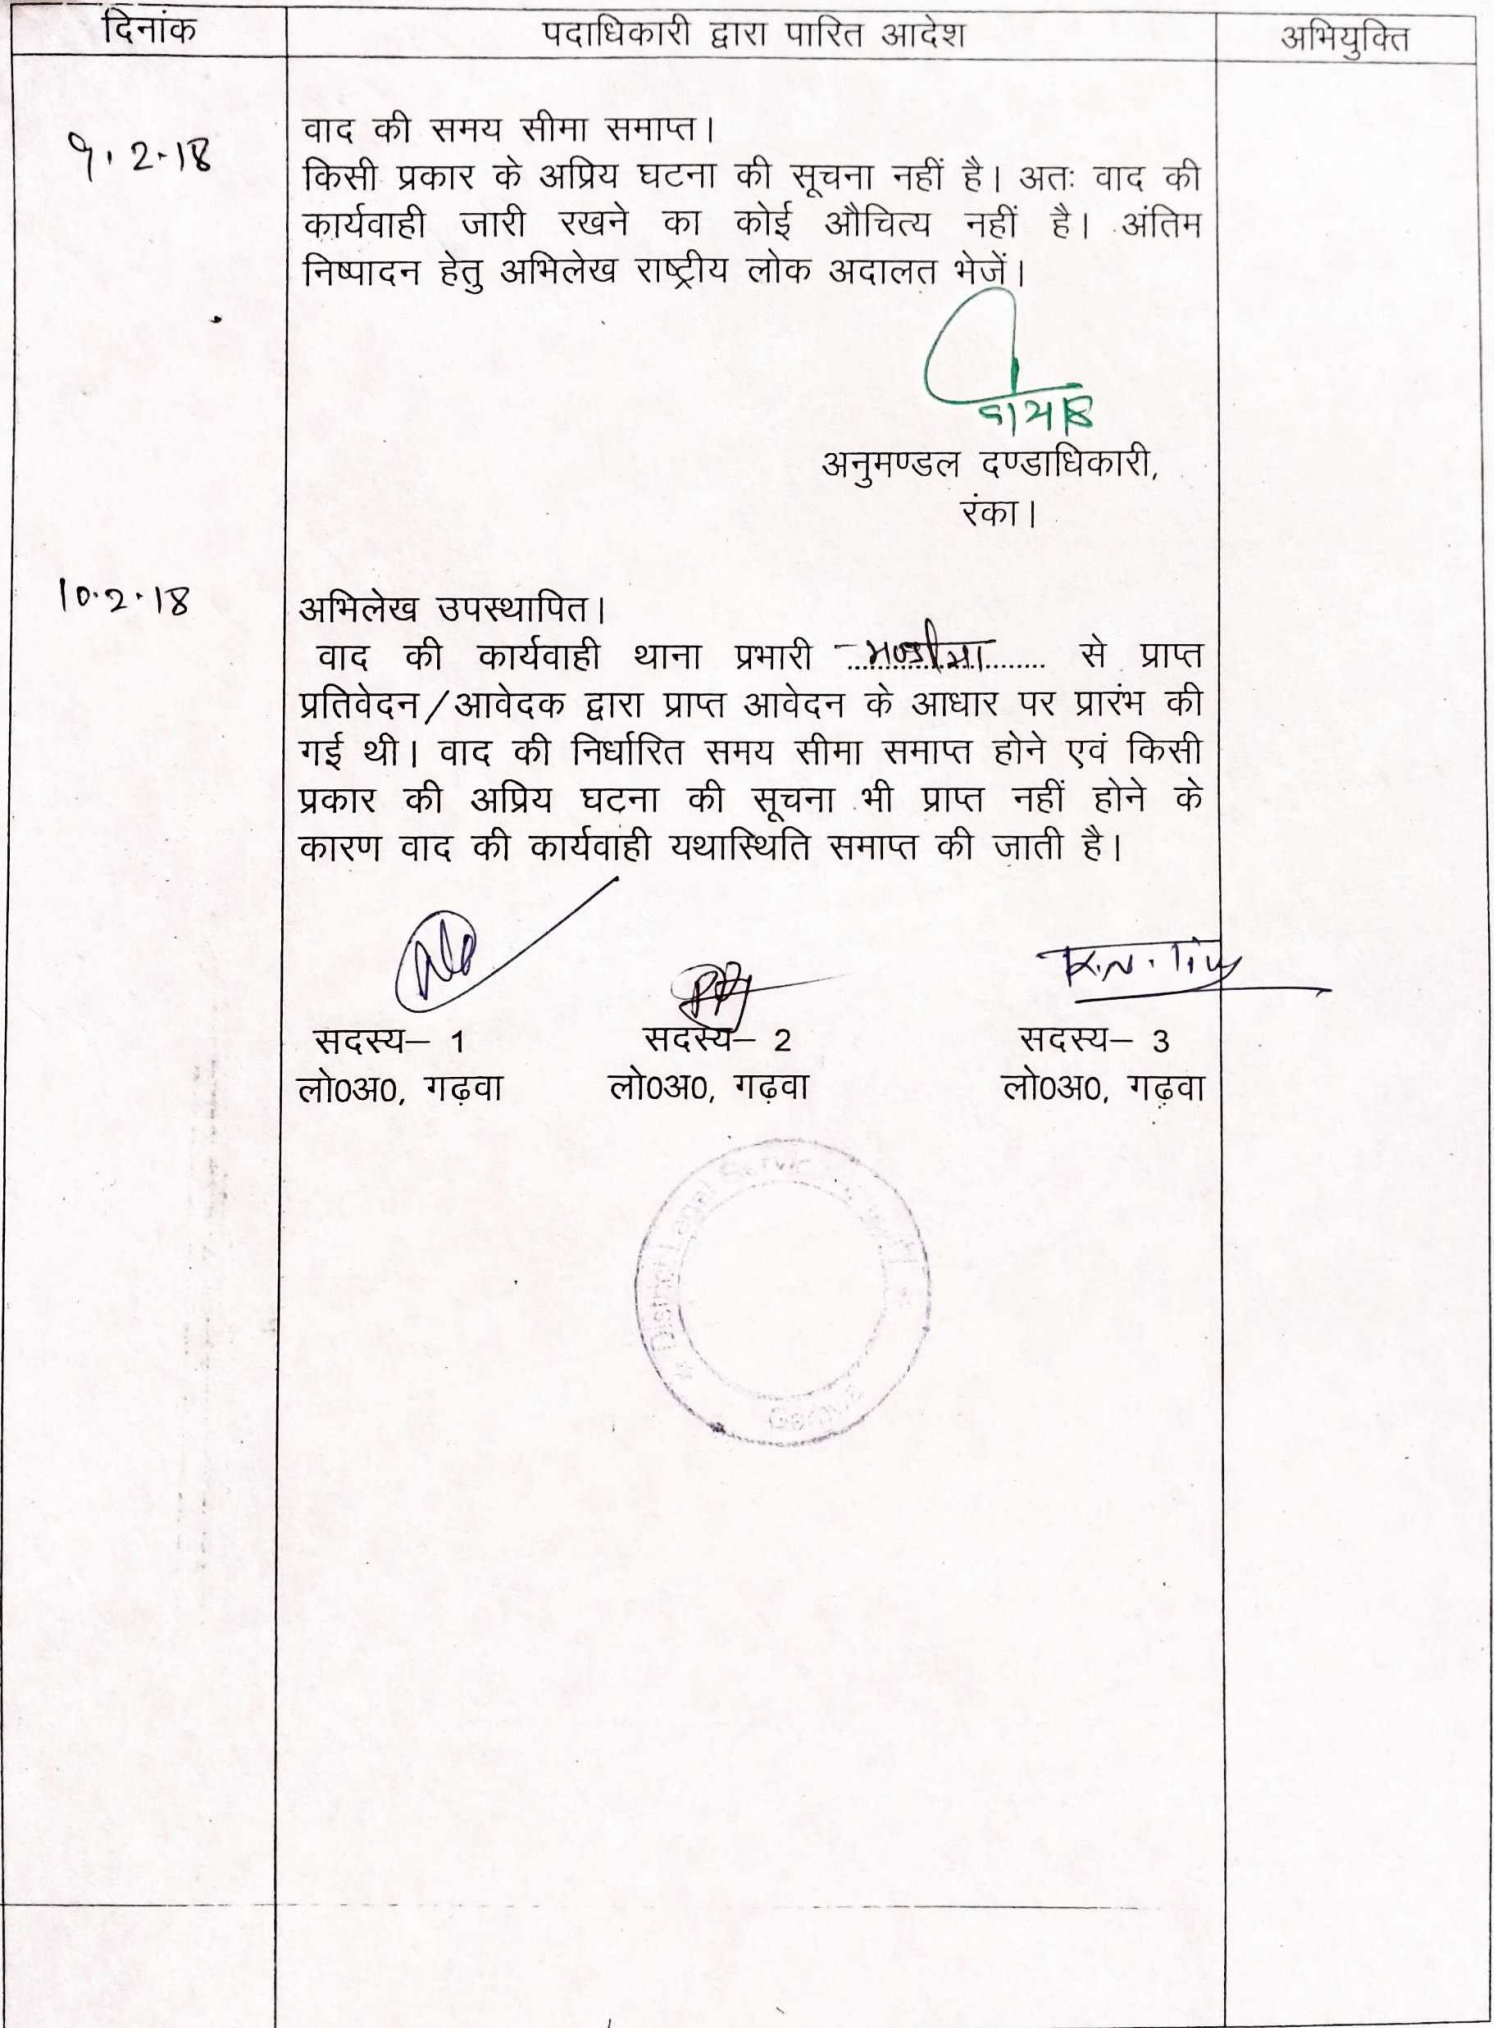 दिनांक पदाधिकारी द्वारा पारित आदेश अभियुक्ति
9.2.18
वाद की समय सीमा समाप्त।
किसी प्रकार के अप्रिय घटना की सूचना नहीं है। अतः वाद की
कार्यवाही जारी रखने का कोई औचित्य नहीं है। अंतिम
निष्पादन हेतु अभिलेख राष्ट्रीय लोक अदालत भेजें।
अनुमण्डल दण्डाधिकारी,
रंका।
10.2.18
अभिलेख उपस्थापित।
वाद की कार्यवाही थाना प्रभारी से प्राप्त
प्रतिवेदन/आवेदक द्वारा प्राप्त आवेदन के आधार पर प्रारंभ की
गई थी। वाद की निर्धारित समय सीमा समाप्त होने एवं किसी
प्रकार की अप्रिय घटना की सूचना भी प्राप्त नहीं होने के
कारण वाद की कार्यवाही यथास्थिति समाप्त की जाती है।
सदस्य– 1 सदस्य– 2 सदस्य– 3
लो0अ0, गढ़वा लो0अ0, गढ़वा लो0अ0, गढ़वा
District Legal
Garhwa